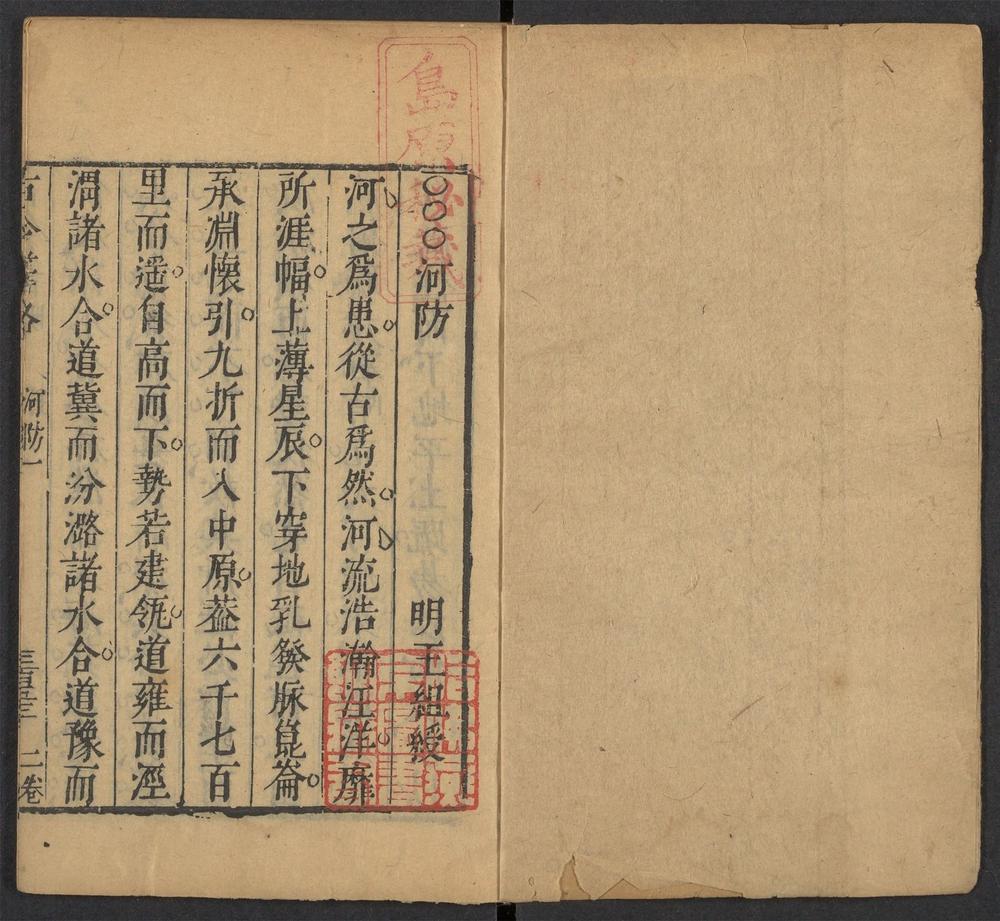 〇〇〇河防　明王組綬
河之爲患從古爲然河流浩瀚江洋靡
所涯幅上薄星辰下穿地乳發脈崑崙
承淵懷引九折而入中原葢六千七百
里而遥自高而下勢若建瓴道雍而涇
渭諸水合道冀而汾潞諸水合道豫而
河防一
二卷
島原秘藏